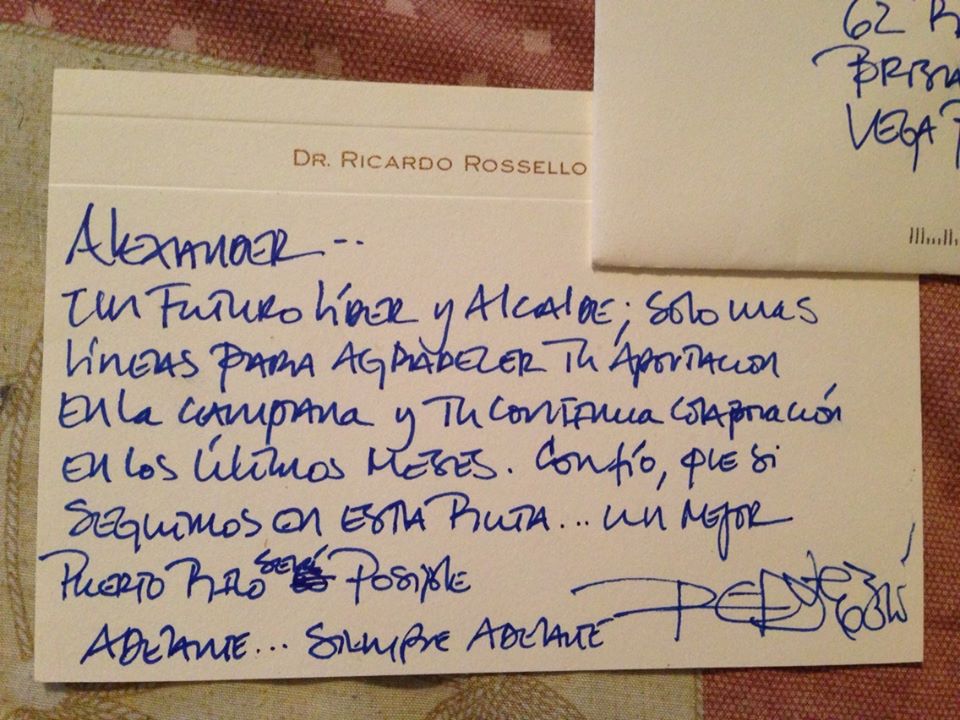 62
VEGA
DR. RICARDO ROSSELLO
ALEXANDER --
Un FUTURO LÍDER y ALCALDE; SÓLO UNAS
LÍNEAS PARA AGRADECER TU APORTACIÓN
EN LA CAMPAÑA y TU CONTINUA
EN LOS ÚLTIMOS MESES. CONFÍO, QUE SI
SEGUIMOS EN ESTA RUTA... UN MEJOR
PUERTO RICO SERÁ POSIBLE
ADELANTE... SIEMPRE ADELANTE